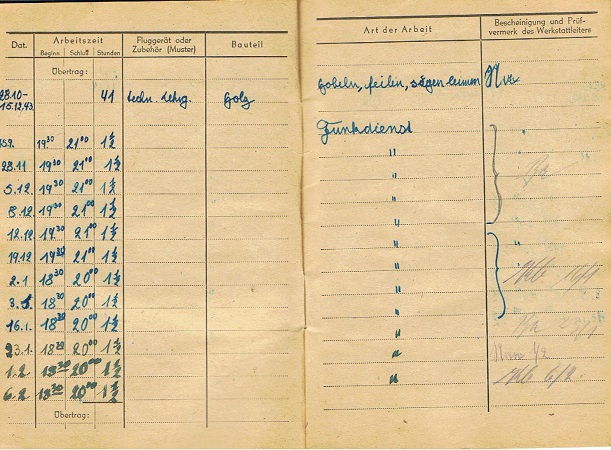 Dat. Arbeitszeit Fluggerät oder Zubehör (Muster) Bauteil
Beginn Schluß Stunden
Übertrag:
28.10- 15.12.43 41 techn. Lehrg. Holz
19³⁰ 21⁰⁰ 1½
28.11 19³⁰ 21⁰⁰ 1½
5.12. 19³⁰ 21⁰⁰ 1½
8.12. 19³⁰ 21⁰⁰ 1½
12.12 19³⁰ 21⁰⁰ 1½
19.12 19³⁰ 21⁰⁰ 1½
2.1 18³⁰ 20⁰⁰ 1½
18³⁰ 20⁰⁰ 1½
16.1. 18³⁰ 20⁰⁰ 1½
23.1. 18³⁰ 20⁰⁰ 1½
1.2. 18³⁰ 20⁰⁰ 1½
6.2. 18³⁰ 20⁰⁰ 1½
Übertrag:
Art der Arbeit Bescheinigung und Prüf-
vermerk des Werkstattleiters
hobeln, feilen, sägen leimen
Funkdienst
"
"
"
"
"
"
"
"
"
"
"